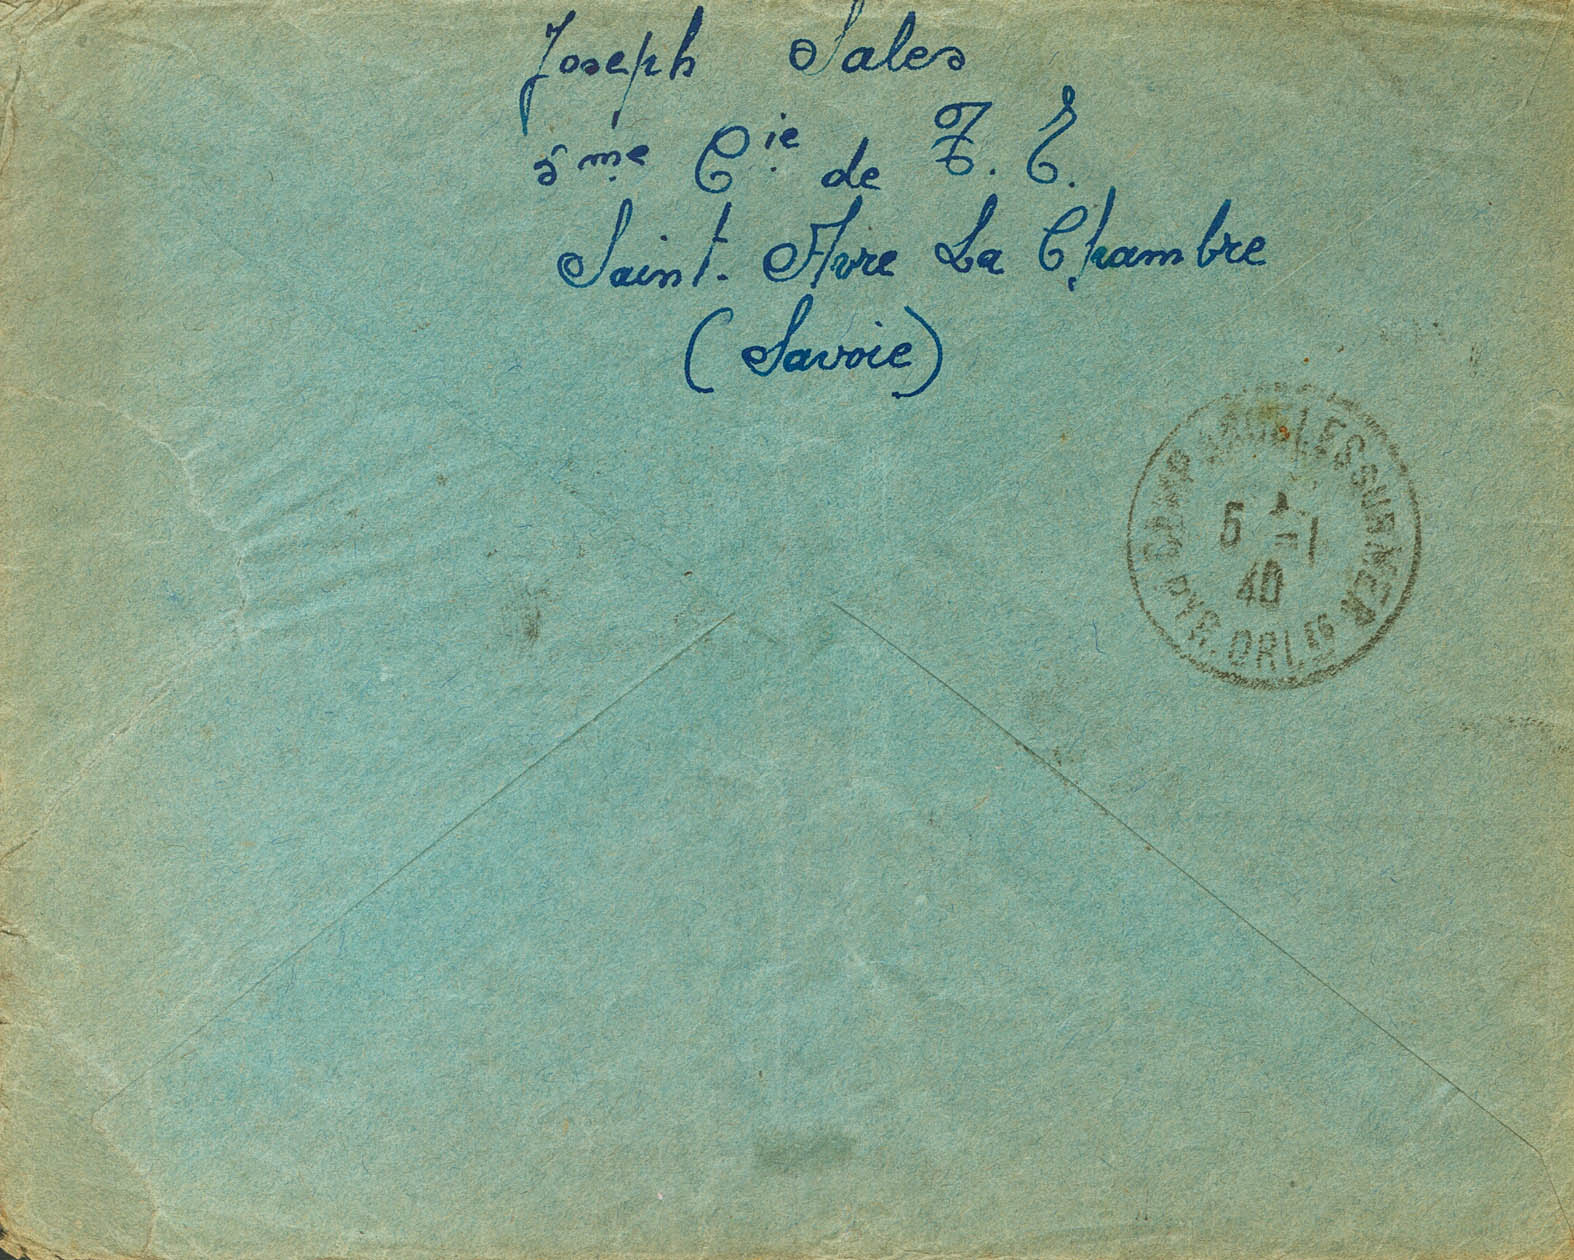 Joseph Sales
5me Cie de T. E.
Saint. Avre La Chambre
(Savoie)
CAMP ARGELES SUR MER
5 -1
40
PYR. ORLES